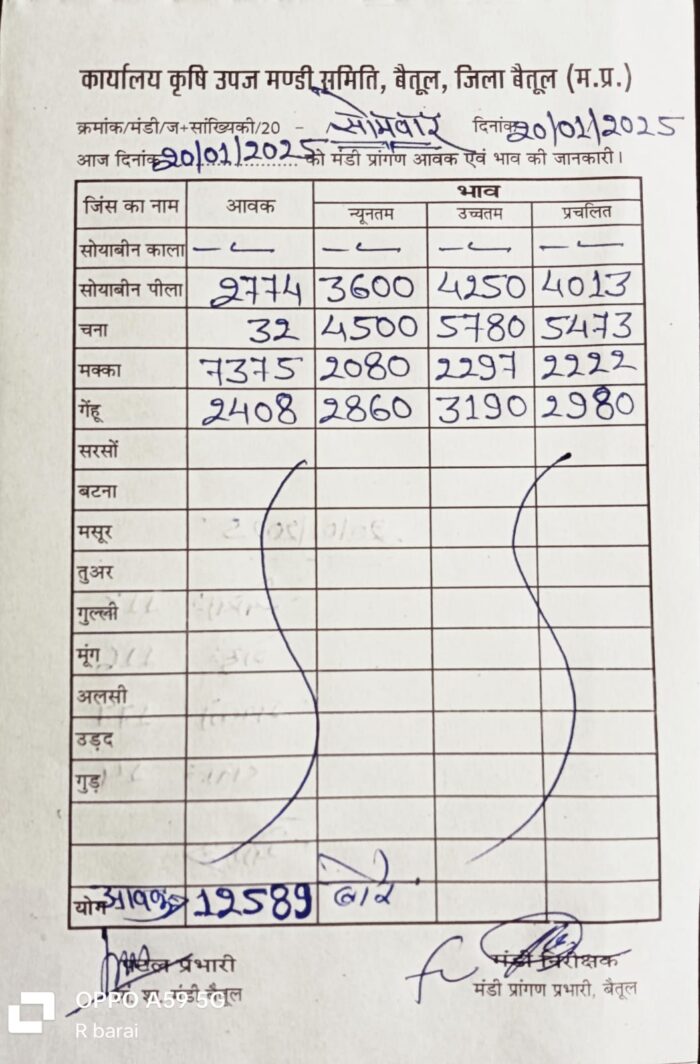 कार्यालय कृषि उपज मण्डी समिति, बैतूल, जिला बैतूल (म.प्र.)
क्रमांक/मंडी/ज+सांख्यिकी/20 - सोमवार दिनांक 20/01/2025
आज दिनांक 20/01/2025 को मंडी प्रांगण आवक एवं भाव की जानकारी।
जिंस का नाम आवक भाव
न्यूनतम उच्चतम प्रचलित
सोयाबीन काला — — — —
सोयाबीन पीला 2774 3600 4250 4013
चना 32 4500 5780 5473
मक्का 7375 2080 2297 2222
गेंहू 2408 2860 3190 2980
सरसों
बटना
मसूर
तुअर
गुल्ली
मूंग
अलसी
उड़द
गुड़
योग आवक 12589 बोरे
प्रभारी मंडी निरीक्षक
मंडी बैतूल मंडी प्रांगण प्रभारी, बैतूल
OPPO A59 5G
R barai